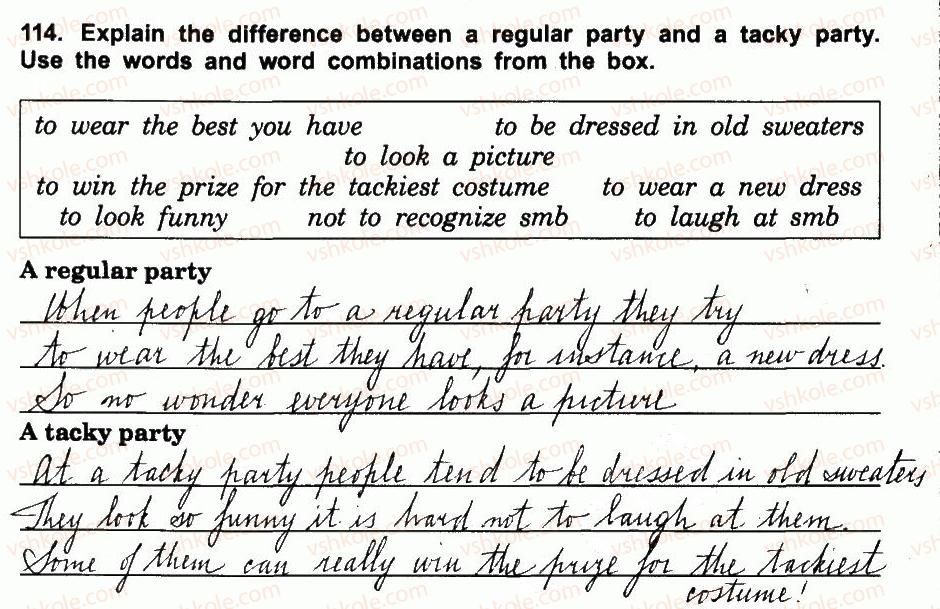 114. Explain the difference between a regular party and a tacky party.
Use the words and word combinations from the box.
to wear the best you have to be dressed in old sweaters
to look a picture
to win the prize for the tackiest costume to wear a new dress
to look funny not to recognize smb to laugh at smb
A regular party
When people go to a regular party they try
to wear the best they have, for instance, a new dress.
So no wonder everyone looks a picture
A tacky party
At a tacky party people tend to be dressed in old sweaters
They look so funny it is hard not to laugh at them.
Some of them can really win the prize for the tackiest
costume!
vshkole.com